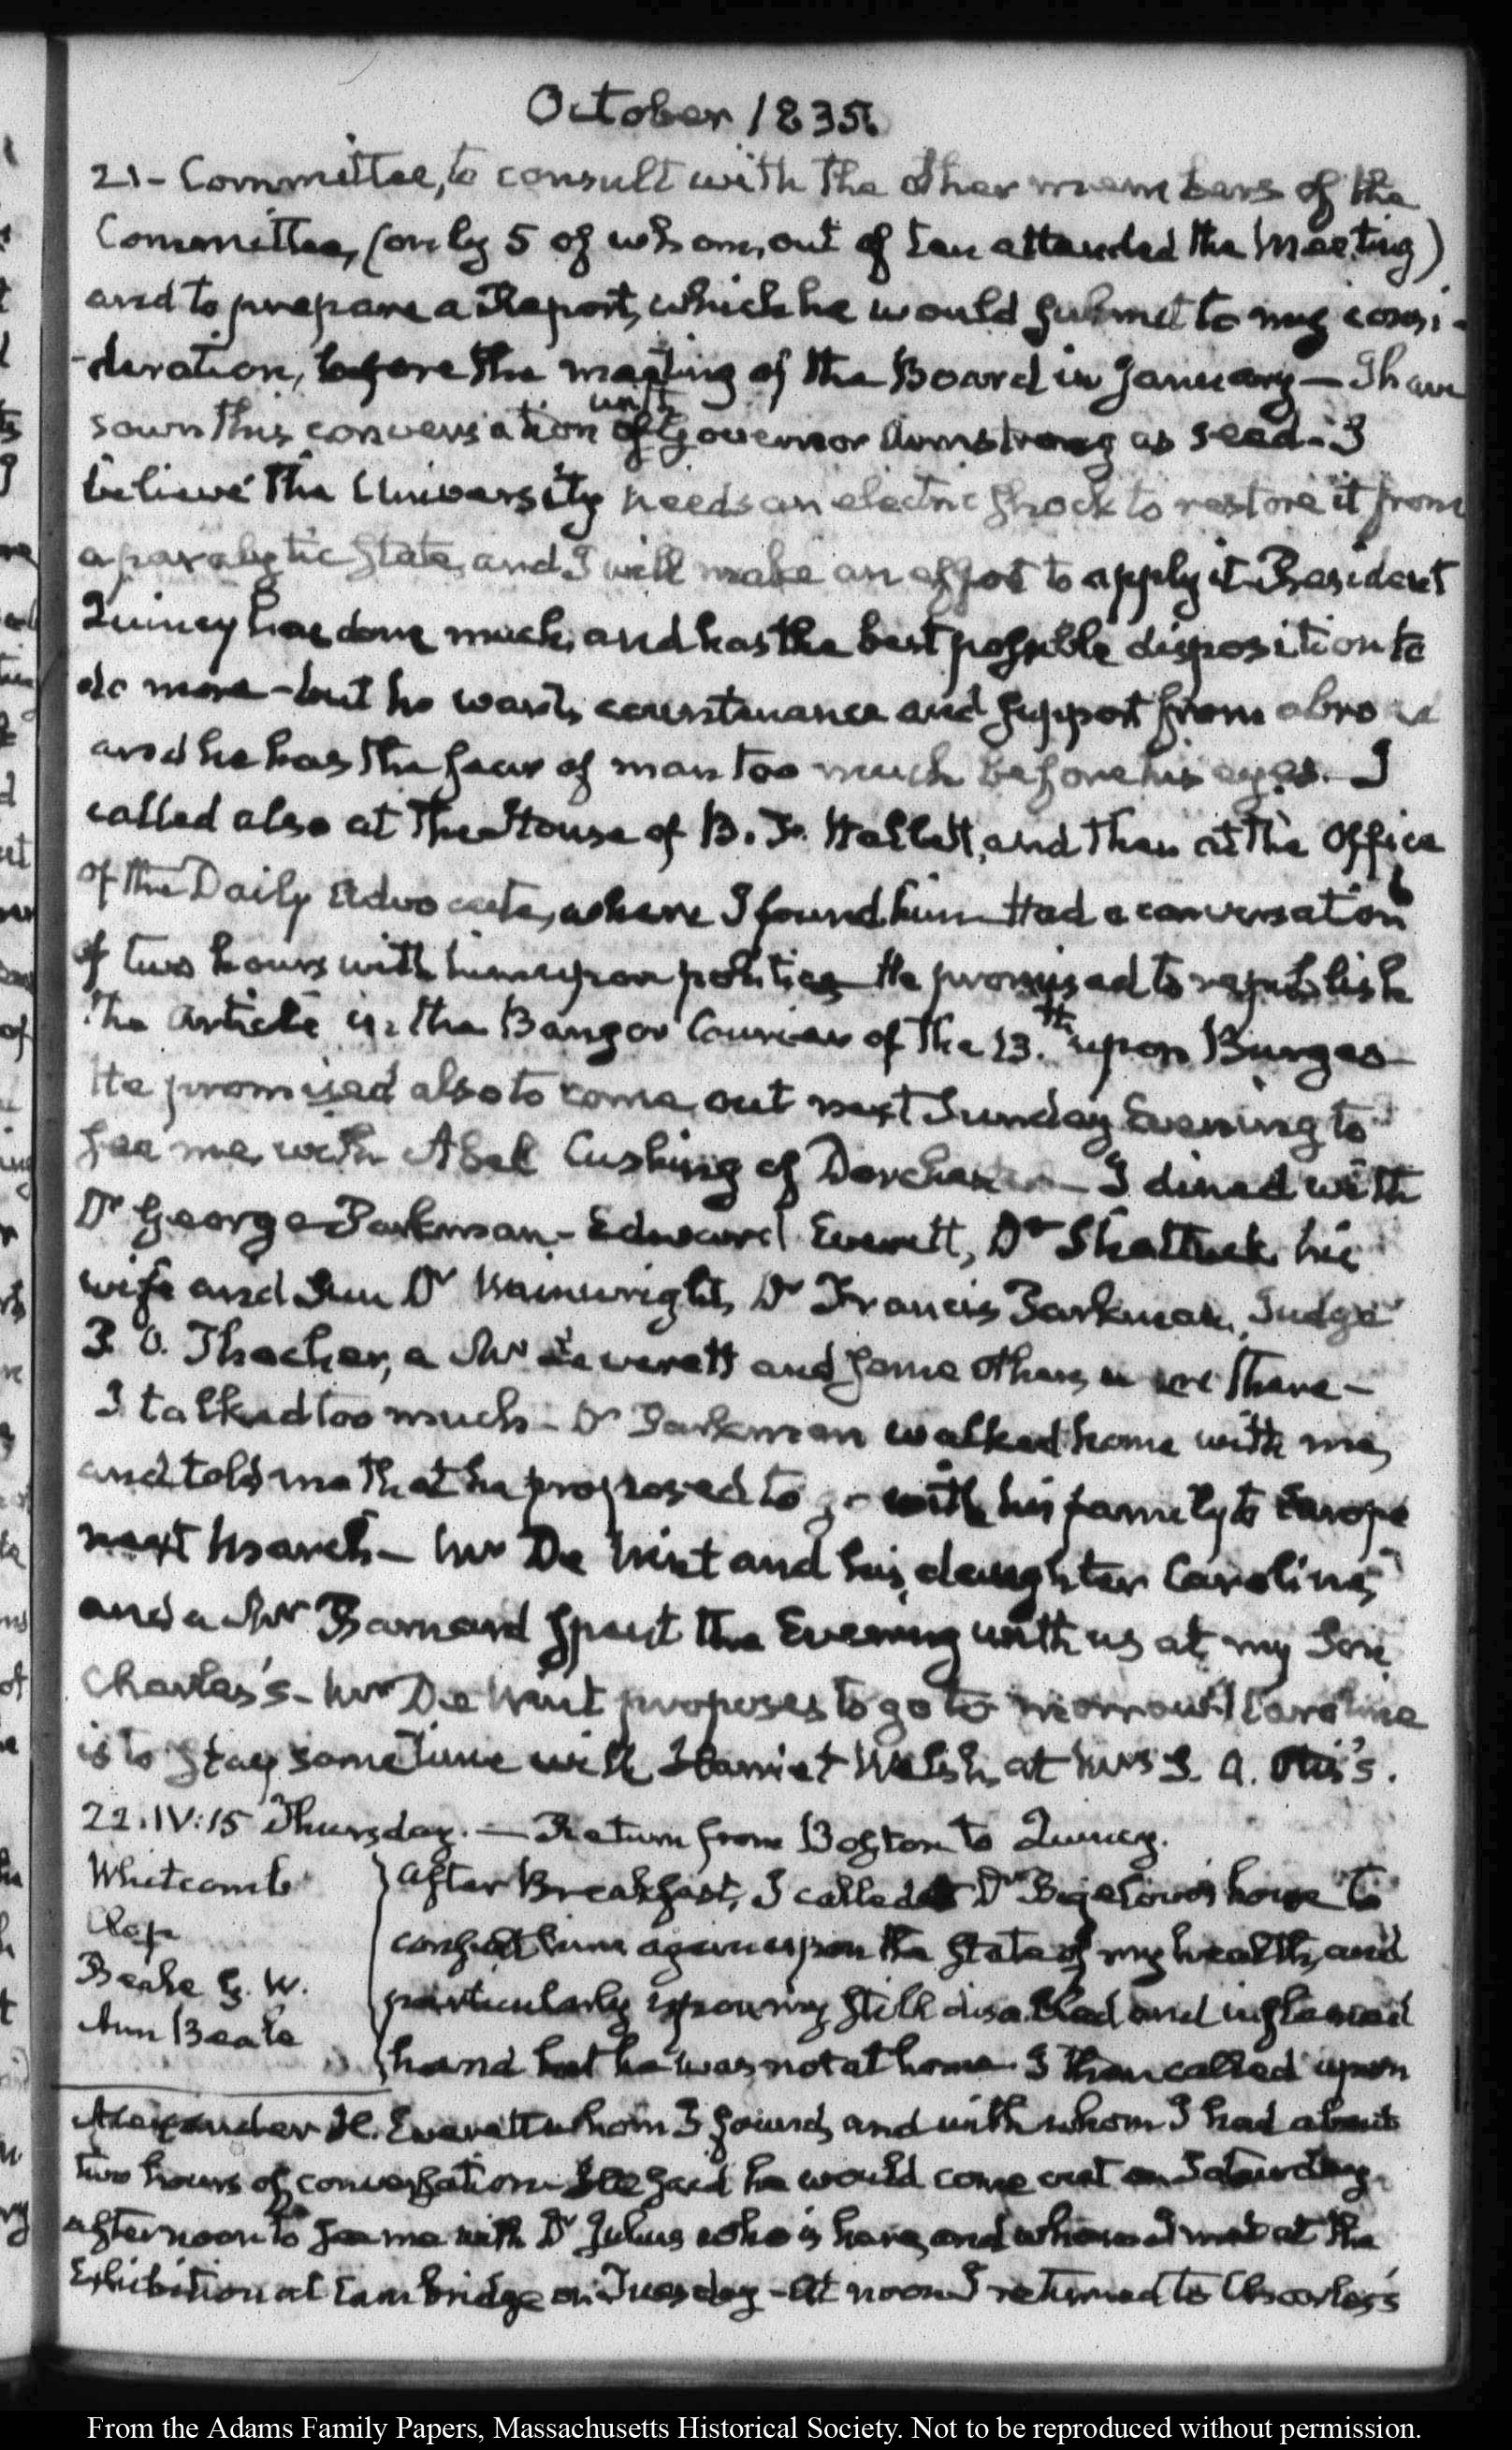 October 1835.
21 - Committee, to consult with the other members of the
Committee, (only 5 of whom, out of ten attended the Meeting)
and to prepare a Report, which he would submit to my consi-
-deration, before the meeting of the Board in January — I have
sown this conversation with of Governor Armstrong as seed - I
believe the University needs an electric shock to restore it from
a paralytic state, and I will make an effort to apply it - President
Quincy has done much, and has the best possible disposition to
do more - but he wants countenance and support from abroad
and he has the fear of man too much before his eyes. - I
called also at the House of B. F. Hallett, and then at the Office
of the Daily Advocate, where I found him - Had a conversation
of two hours with him upon politics - He promised to republish
the Article in the Bangor Courier of the 13.th upon Burges -
He promised also to come out next Sunday Evening to
see me, with Abel Cushing of Dorchester - I dined with
Dr George Parkman - Edward Everett, Dr Shattuck, his
wife and Son Dr Wainwright, Dr Francis Parkman, Judge
P. O. Thacher, a Mr Leverett and some others were there -
I talked too much - Dr Parkman walked home with me,
and told me that he proposed to go with his family to Europe
next March - Mr De Wint and his daughter Caroline,
and a Mr Barnard spent the Evening with us at my Son
Charles's - Mr De Wint proposes to go to morrow. Caroline
is to stay some time with Harriet Welsh, at Mrs S. A. Otis's.
22. IV:15 Thursday. — Return from Boston to Quincy.
Whitcomb
Clap
Beale G. W.
Ann Beale
After Breakfast, I called at Dr Bigelow's house to
consult him again upon the state of my health, and
particularly upon my still disabled and inflamed
hand but he was not at home - I then called upon
Alexander H. Everett whom I found, and with whom I had about
two hours of conversation - He said he would come out on Saturday
afternoon to see me with Dr Julius who is here, and whom I met at the
Exhibition at Cambridge on Tuesday - At noon I returned to Charles's
From the Adams Family Papers, Massachusetts Historical Society. Not to be reproduced without permission.